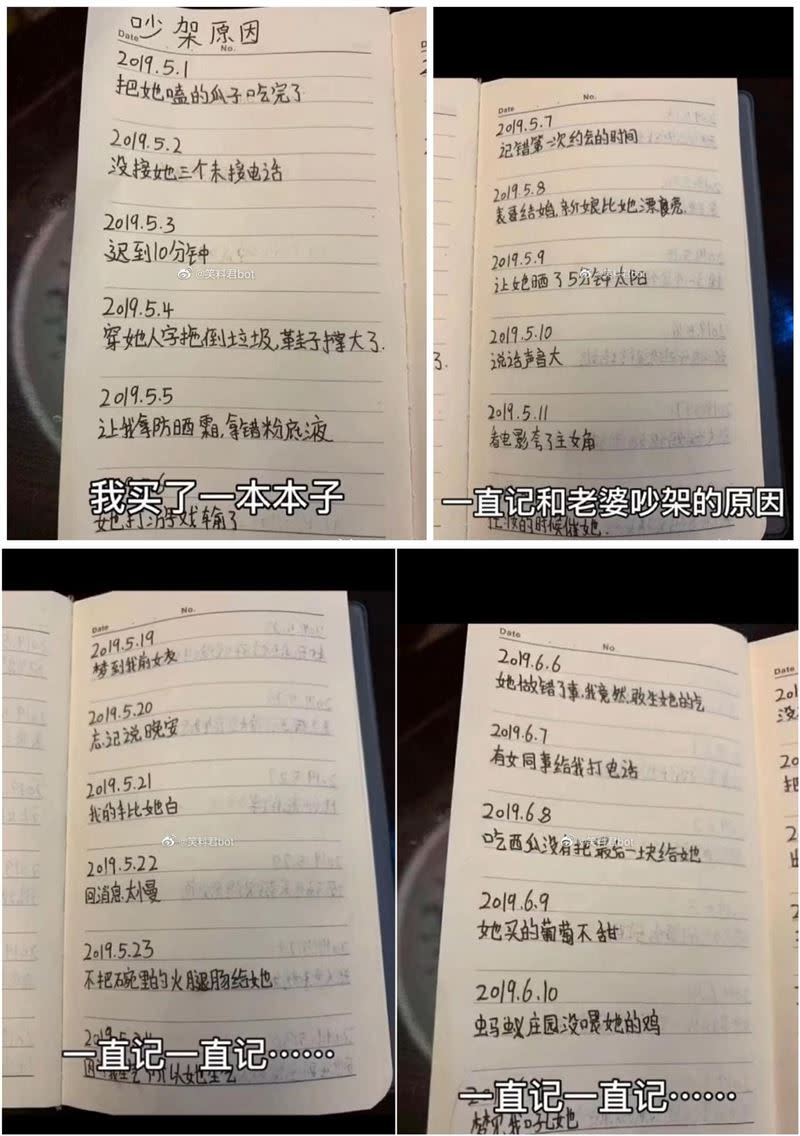 吵架原因
Date
No.
2019.5.1
把她嗑的瓜子吃完了
2019.5.2
没接她三个未接电话
2019.5.3
迟到10分钟
@笑料君bot
2019.5.4
穿她人字拖倒垃圾,鞋子撑大了.
2019.5.5
让我拿防晒霜,拿错粉底液
我买了一本本子
她打游戏输了
Date
No.
2019.5.7
记错第一次约会的时间
2019.5.8
表哥结婚,新娘比她漂亮.
2019.5.9
让她晒了5分钟太阳
2019.5.10
说话声音大
2019.5.11
看电影夸了主女角
一直记和老婆吵架的原因
的时候催她.
Date
No.
2019.5.19
梦到我前女友
2019.5.20
忘记说晚安
2019.5.21
我的手比她白
@笑料君bot
2019.5.22
回消息太慢
2019.5.23
不把碗里的火腿肠给她
一直记一直记……
Date
No
2019.6.6
她做错了事,我竟然敢生她的气
2019.6.7
有女同事给我打电话
2019.6.8
吃西瓜没有把最后一块给她
2019.6.9
她买的葡萄不甜
2019.6.10
蚂蚁庄园没喂她的鸡
一直记一直记……
梦见我吼她